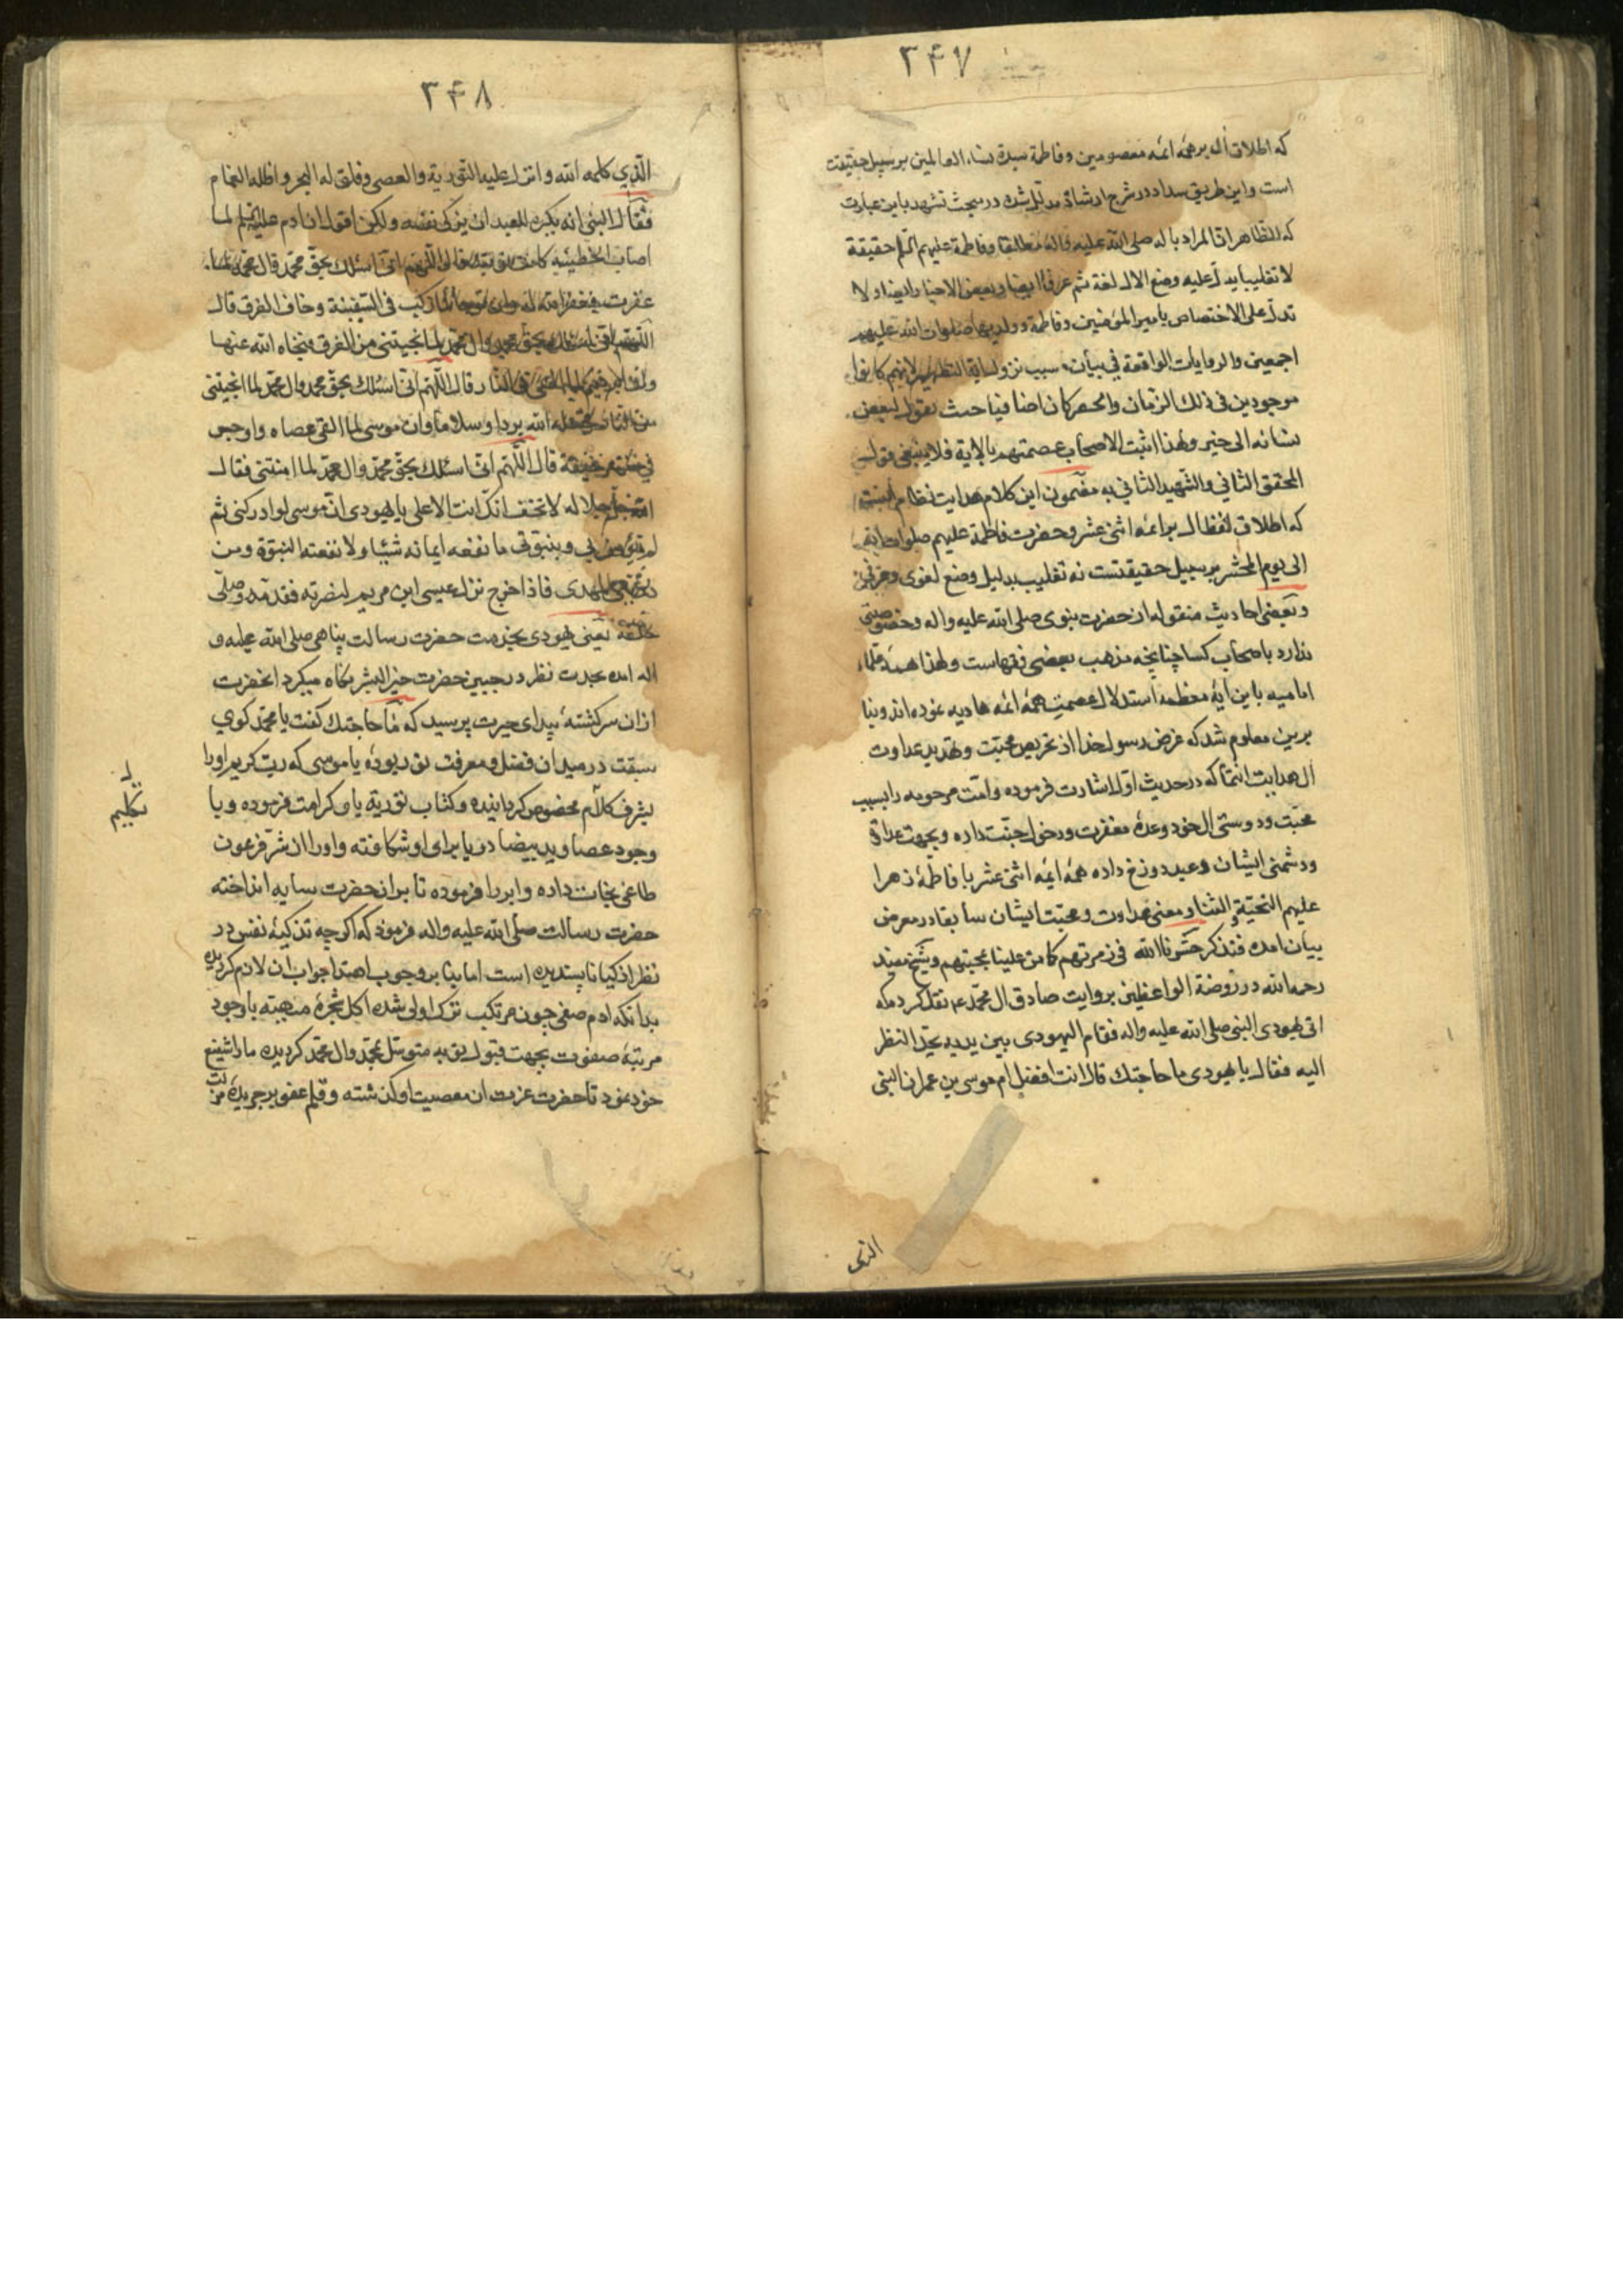 ۳۴۷
که اطلاق آل بر همه ائمه معصومین و فاطمة سیدة نساء العالمین بر سبیل حقیقت
است و این طریق سداد در شرح ارشاد مدلل شده در مبحث تشهد باین عبارت
که الظاهر ان المراد باله صلی الله علیه واله مطلقا وفاطمة علیهم السلم حقیقة
لا تغلیبا یدل علیه وضع الال لغة ثم عرفا ایضا وبعض الاخبار ایضا ولا
تدل علی الاختصاص بامیر المؤمنین وفاطمة وولدیهما صلوات الله علیهم
اجمعین والروایات الواقعة فی بیان سبب نزول ایة التطهیر لانهم کانوا
موجودین فی ذلک الزمان والحصر کان اضافیا حیث یقول لبعض
نسائه الی خیر ولهذا اثبت الاصحاب عصمتهم بالایة فلا ینبغی قول
المحقق الثانی والشهید الثانی به مضمون این کلام هدایت نظام
که اطلاق لفظ ال بر ائمه اثنی عشر و حضرت فاطمة علیهم صلوات الله
الی یوم المحشر بر سبیل حقیقتست نه تغلیب بدلیل وضع لغوی و عرفی
و بعضی احادیث منقوله از حضرت نبوی صلی الله علیه واله و خصوصیتی
ندارد باصحاب کسا چنانچه مذهب بعضی فقهاست ولهذا همه علماء
امامیه باین آیة معظمه استدلال عصمت همه ائمه هادیه نموده اند و بنا
برین معلوم شد که غرض رسول خدا از تحریص محبت و تهدید عداوت
آل هدایت انتما که در حدیث اول اشارت فرموده و امت مرحومه را بسبب
محبت و دوستی ال خود وعدهٔ مغفرت و دخول جنت داده و بجهت عداوت
و دشمنی ایشان وعید دوزخ داده همه ائمه اثنی عشر با فاطمهٔ زهرا
علیهم التحیة والثناء و معنی عداوت و محبت ایشان سابقا در معرض
بیان امده فتذکر حشرنا الله فی زمرتهم کما من علینا بمحبتهم و شیخ مفید
رحمه الله در روضة الواعظین بروایت صادق ال محمد ع م نقل کرده که
اتی یهودی النبی صلی الله علیه واله فقام الیهودی بین یدیه یحد النظر
الیه فقال یا یهودی ما حاجتک قال انت افضل ام موسی بن عمران النبی
الذی
۳۴۸
الذی کلمه الله وانزل علیه التوریة والعصی وفلق له البحر واظله الغمام
فقال النبی انه یکره للعبد ان یزکی نفسه ولکن اقول ان ادم علیه السلم لما
اصاب الخطیئة کانت توبته قال اللهم انی اسئلک بحق محمد وال محمد لما
غفرت فغفر الله له وان نوحا لما رکب فی السفینة وخاف الغرق قال
اللهم انی اسئلک بحق محمد وال محمد لما انجیتنی من الغرق فنجاه الله عنها
وان ابرهیم لما القی فی النار قال اللهم انی اسئلک بحق محمد وال محمد لما انجیتنی
من النار فجعله الله بردا وسلاما وان موسی لما القی عصاه واوجس
فی نفسه خیفة قال اللهم انی اسئلک بحق محمد وال محمد لما امنتنی فقال
الله جل جلاله لا تخف انک انت الاعلی یا یهودی ان موسی لو ادرکنی ثم
لم یؤمن بی وبنبوتی ما نفعه ایمانه شیئا ولا نفعته النبوة ومن
ذریتی المهدی فاذا خرج نزل عیسی ابن مریم لنصرته فقدمه وصلی
خلفه یعنی یهودی بخدمت حضرت رسالت پناهی صلی الله علیه و
اله امده بحدت نظر در جبین حضرت خیر البشر نگاه میکرد انحضرت
ازان سرگشتهٔ بیدای حیرت پرسید که ما حاجتک گفت یا محمد گوی
سبقت در میدان فضل و معرفت تو ربوده یا موسی که رب کریم اورا
بشرف کلام مخصوص گردانیده و کتاب توریة باو کرامت فرموده و با
وجود عصا و ید بیضا دریا برای او شکافته و اورا از شر فرعون
طاغی نجات داده و ابر را فرموده تا بران حضرت سایه انداخته
حضرت رسالت صلی الله علیه واله فرمود که اگرچه تزکیهٔ نفس در
نظر ازکیا ناپسندیده است اما بنا بر وجوب اهتدا جواب ان لازم گردیده
بدانکه ادم صفی چون مرتکب ترک اولی شده اکل شجرهٔ منهیه با وجود
مرتبهٔ صفوت بجهت قبول توبه متوسل بمحمد وال محمد گردیده ما را شفیع
خود نمود تا حضرت عزت ان معصیت او گذشته و قلم عفو بر جریدهٔ
تکلیم